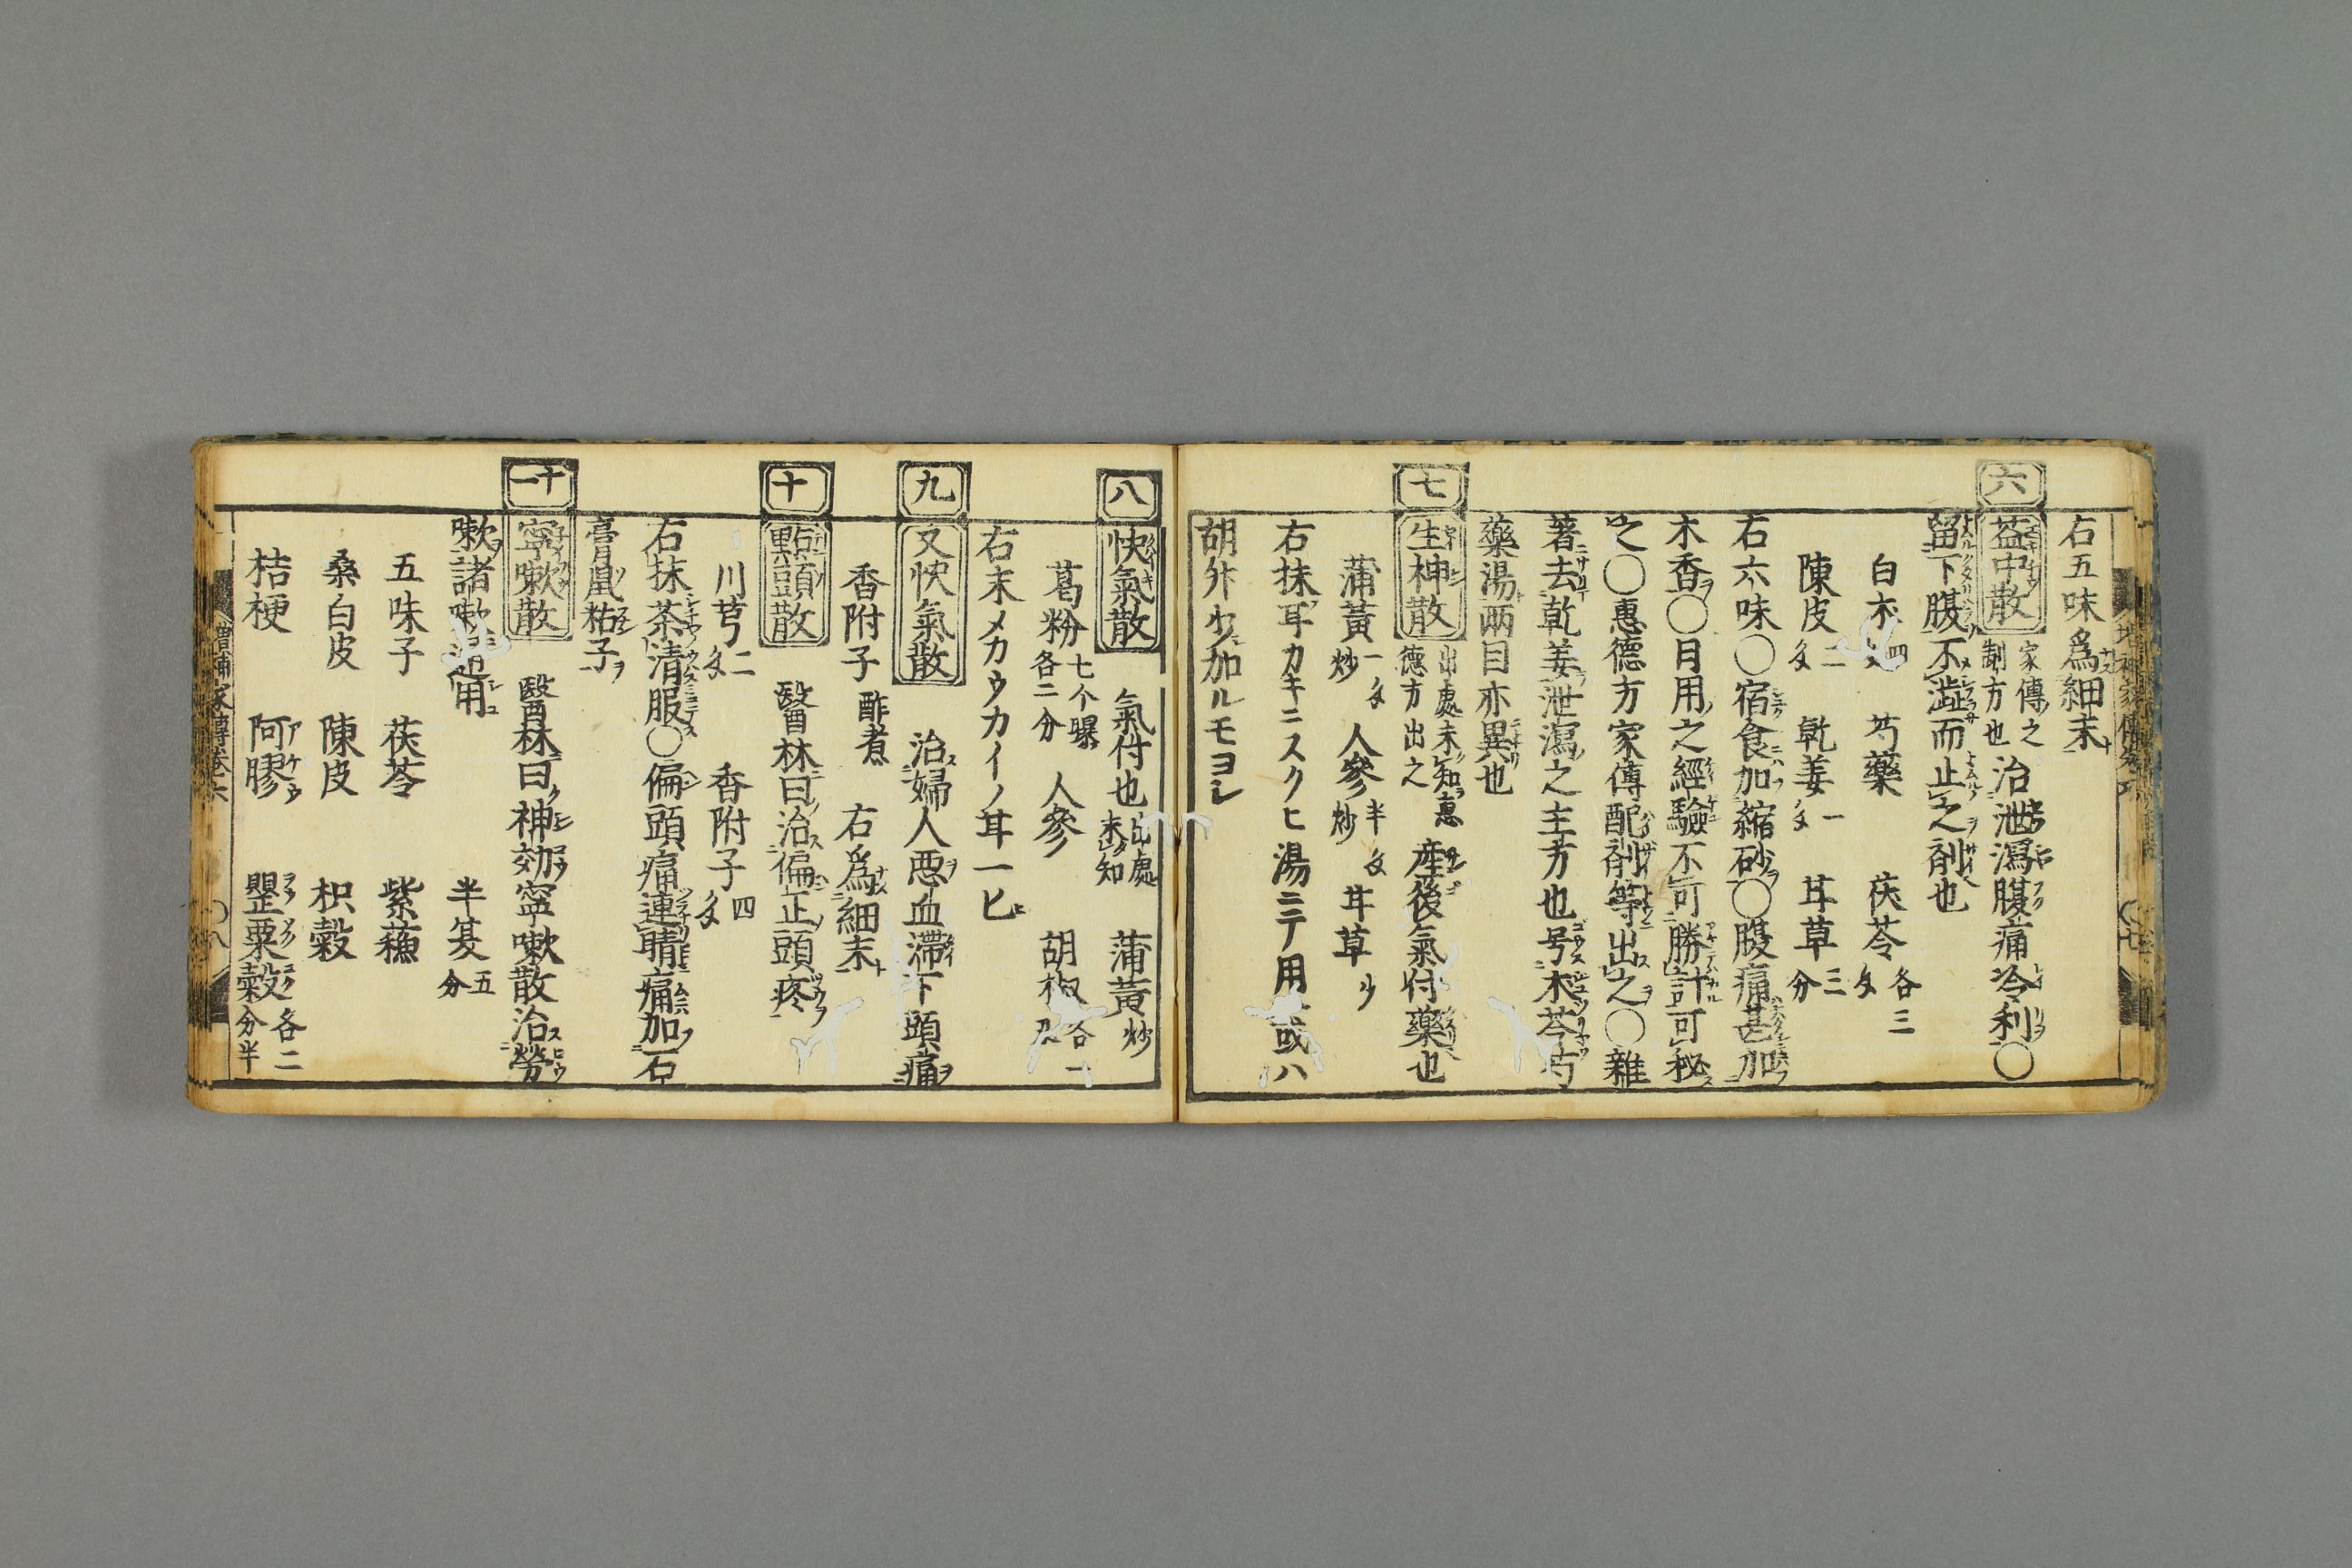 右五味爲細末
六
益中散 家傳之制方也 治泄瀉腹痛冷利〇
留下腹不澁而止之剤也
白朮 四 芍藥 茯苓 各三匁
陳皮 二匁 乾姜 一匁 甘草 三分
右六味〇宿食加縮砂〇腹痛甚加
木香〇日用之經驗不可勝計可秘
之〇惠德方家傳配剤等出之〇雜
著去乾姜泄瀉之主方也号朮苓芍
藥湯兩目亦異也
七
生神散 出處未知惠德方出之 産後氣付藥也
蒲黃 一匁炒 人參 半匁炒 甘草 少
右抹耳カキニスクヒ湯ニテ用 或ハ
胡升少加ルモヨシ
八
快氣散 氣付也 出處未知 蒲黃 炒
葛粉 七个曝各二分 人參 胡椒 各一
右末メカウカイノ耳一匕
九
又快氣散 治婦人悪血滯下頭痛
香附子 酢煮 右爲細末
十
點頭散 醫林曰治偏正頭疼
川芎 二匁 香附子 四匁
右抹茶清服〇偏頭痛連睛痛加石
膏鼠粘子
十一
寧嗽散 醫林曰神効寧嗽散治勞
嗽諸嗽通用 半夏 五分
五味子 茯苓 紫蘓
桑白皮 陳皮 枳殼
桔梗 阿膠 罌粟殼 各二分半
增補家傳卷六 〇八